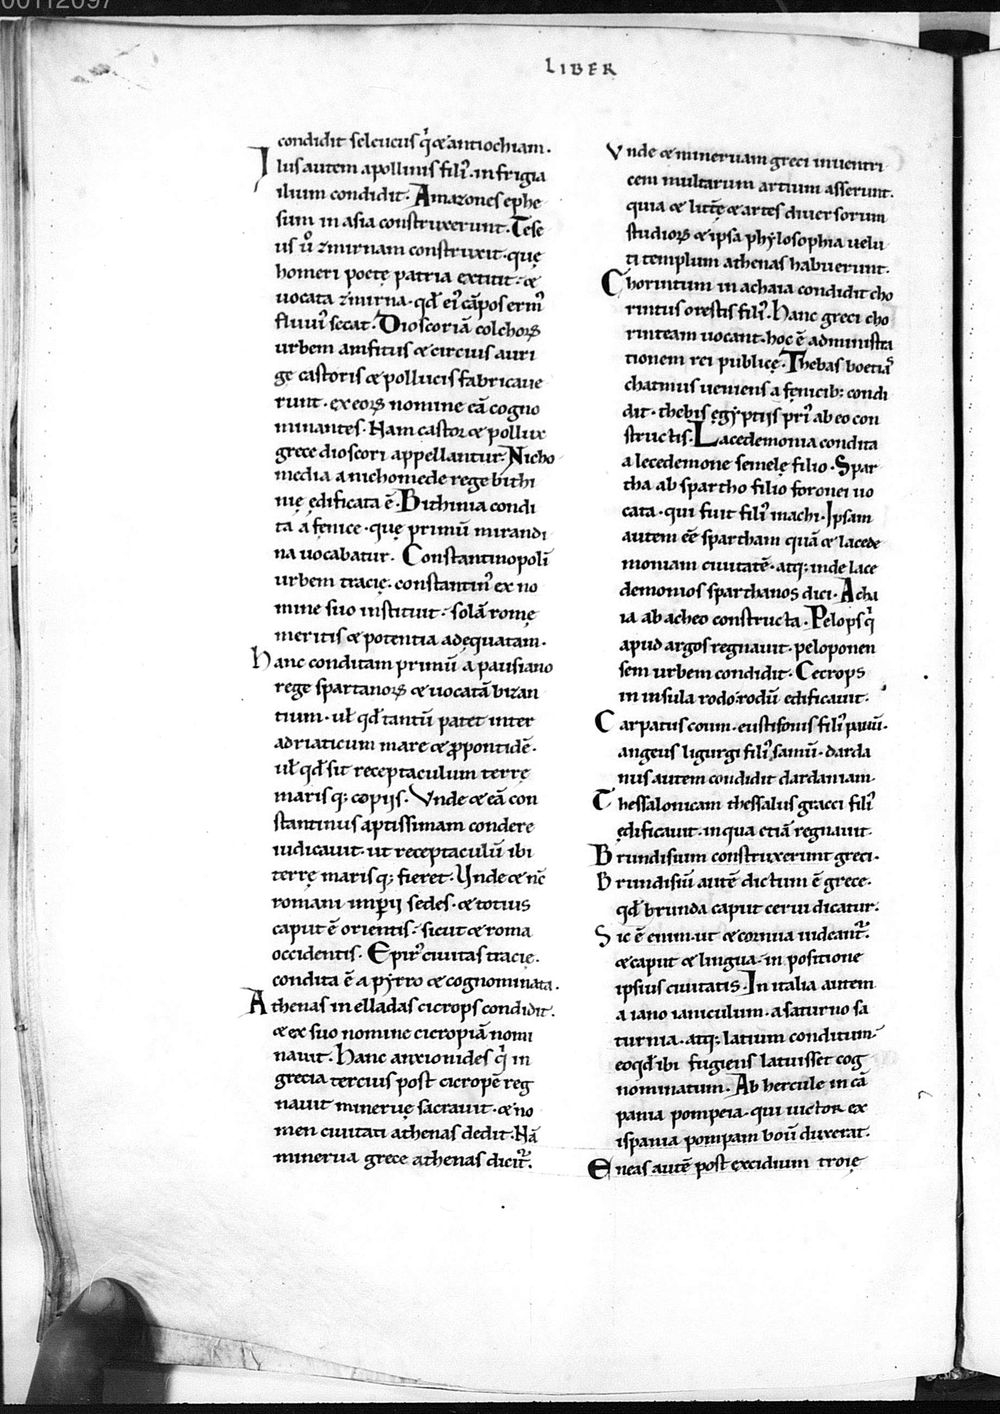 00112097
LIBER
condidit seleucus q̇ & antiochiam.
Ilus autem apollinis fili᷒. in frigia
ilium condidit. Amazones ephe
sum in asia construxerunt. Tese
us ů zmirnam construxit. quę
homeri poetę patria extitit. &
uocata zmirna. qđ ei᷒ cāpos erm᷒
fluui᷒ secat. Dioscoriā colchoꝝ
urbem amfitus & circius auri
ge castoris & pollucis fabricaue
runt. ex eoꝝ nomine eā cogno
minantes. Nam castor & pollux
grece dioscori appellantur. Nicho
media a nichomede rege bithi
nię ędificata ē. Bithinia condi
ta a fenice. quę primū mirandi
na uocabatur. Constantinopolī
urbem tracię. constantin᷒ ex no
mine suo instituit. solā romę
meritis & potentia adęquatam.
Hanc conditam primū a pausiano
rege spartanoꝝ & uocatā bizan
tium. uł qđ tantū patet inter
adriaticum mare & ꝓpontidē.
uł qđ sit receptaculum terrę
marisq; copiis. Vnde & eā con
stantinus aptissimam condere
iudicauit. ut receptaculū ibi
terrę marisq; fieret. Vnde & nc̄
romani imꝑii sedes. & totius
caput ē orientis. sicut & roma
occidentis. Epir᷒ ciuitas tracię.
condita ē a pyrro & cognominata.
Athenas in elladas cicrops condidit.
& ex suo nomine cicropiā nomi
nauit. Hanc anxionides q̇ in
grecia tercius post cicropē reg
nauit mineruę sacrauit. & no
men ciuitati athenas dedit. Nā
minerua grece athenas dicit᷒.
Vnde & mineruam greci inuentri
cem multarum artium asserunt.
quia & littę & artes diuersorum
studioꝝ & ipsa phylosophia uelu
ti templum athenas habuerunt.
Chorintum in achaia condidit cho
rintus orestis fili᷒. Hanc greci cho
rinteam uocant. hoc ē administra
tionem rei publicę. Thebas boetia᷒
chatmus ueniens a fęnicib; condi
dit. thebis ęgyptiis pri᷒ ab eo con
structis. Lacedemonia condita
a lecedemone semelę filio. Spar
tha ab spartho filio foronei uo
cata. qui fuit fili᷒ inachi. Ipsam
autem eē spartham quā & lacede
moniam ciuitatē. atq; inde lace
demonios sparthanos dici. Acha
ia ab acheo constructa. Pelops q̇
apud argos regnauit. peloponen
sem urbem condidit. Cecrops
in insula rodo. rodū edificauit.
Carpatus coum. eustifonis fili᷒ pauū.
angeus ligurgi fili᷒ samū. darda
nus autem condidit dardaniam.
Thessalonicam thessalus gracci fili᷒
ędificauit. in qua etiā regnauit.
Brundisium construxerunt greci.
Brundisiū autē dictum ē grece.
qđ brunda caput cerui dicatur.
Sic ē enim. ut & cornua uideant᷒.
& caput & lingua. in positione
ipsius ciuitatis. In italia autem
a iano ianiculum. a saturno sa
turnia. atq; latium conditum.
eoqđ ibi fugiens latuisset cog
nominatum. Ab hercule in cā
pania pompeia. qui uictor ex
ispania pompam boū duxerat.
Eneas autē post excidium troię